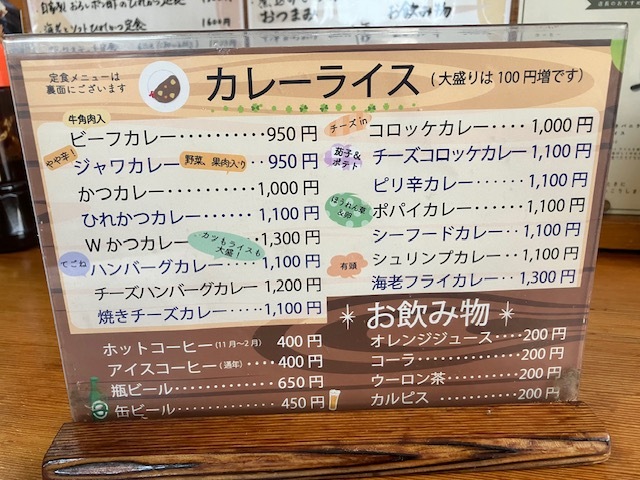 定食メニューは
裏面にございます
カレーライス
(大盛りは100円増です)
牛角肉入
ビーフカレー・・・・・・・・・・950円
やや辛!
ジャワカレー
野菜、果肉入り
・・950円
かつカレー・・・・・・・・・・1,000円
ひれかつカレー・・・・・・1,100円
Wかつカレー
カツもライスも
大盛!
・1,300円
てごね
ハンバーグカレー・・・・1,100円
チーズハンバーグカレー・1,200円
焼きチーズカレー・・・・・1,100円
チーズin
コロッケカレー・・・・1,000円
茄子&
ポテト
チーズコロッケカレー・1,100円
ピリ辛カレー・・・・・・1,100円
ほうれん草
&卵
ポパイカレー・・・・・・1,100円
シーフードカレー・・・・1,100円
有頭
シュリンプカレー・・・・1,100円
海老フライカレー・・1,300円
お飲み物
ホットコーヒー(11月〜2月) 400円
アイスコーヒー(通年)・・・400円
瓶ビール・・・・・・・・・・・・650円
缶ビール・・・・・・・・・・・・450円
オレンジジュース・・・・・200円
コーラ・・・・・・・・・・・・・200円
ウーロン茶・・・・・・・・・・200円
カルピス・・・・・・・・・・・・200円
おつまみ
お飲み物